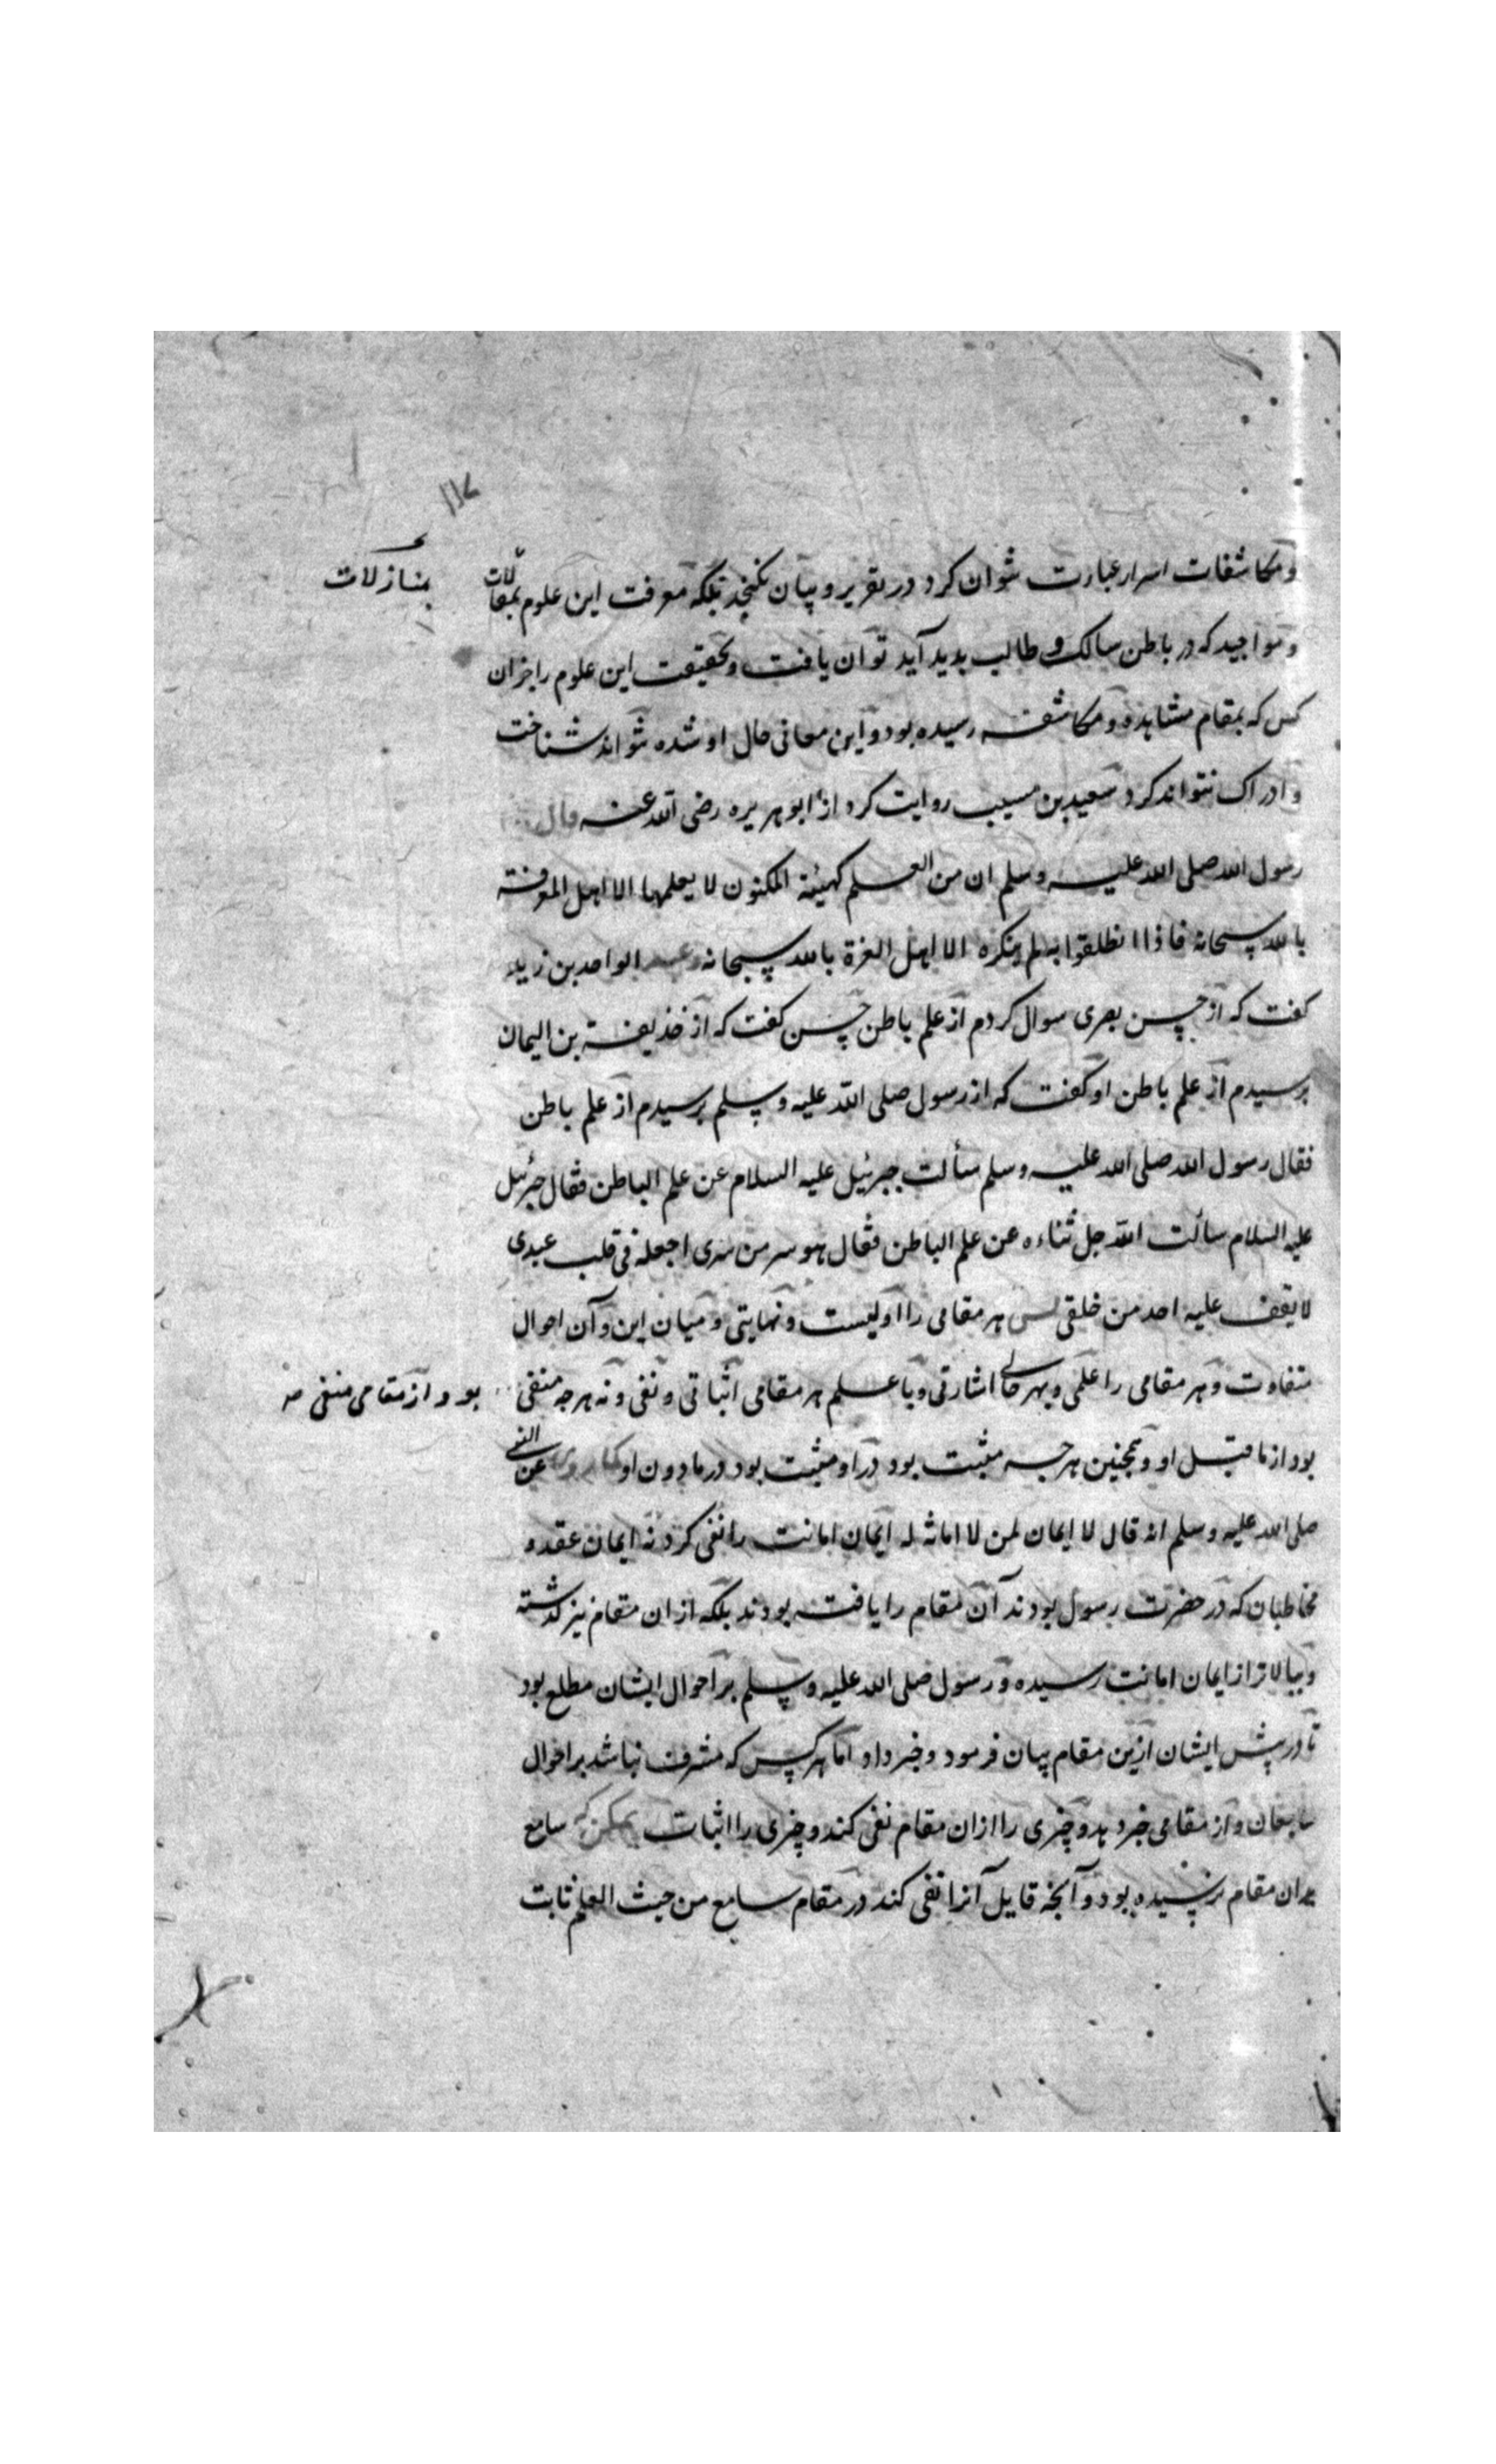 ۱۱۷
ومکاشفات اسرار عبارت نتوان کرد در تقریر و بیان نگنجد بلکه معرفت این علوم بمقالات
بمنازلات
و مواجید که در باطن سالک و طالب پدید آید توان یافت و حقیقت این علوم را جز آن
کس که بمقام مشاهده و مکاشفه رسیده بود و این معانی حال او شده نتواند شناخت
و ادراک نتواند کرد سعید بن مسیب روایت کرد از ابو هریره رضی الله عنه قال
رسول الله صلی الله علیه وسلم ان من العلم کهیئة المکنون لا یعلمها الا اهل المعرفة
بالله سبحانه فاذا انطلقوا به لم ینکره الا اهل العزة بالله سبحانه وعبد الواحد بن زید
کفت که از حسن بصری سوال کردم از علم باطن حسن کفت که از خذیفه بن الیمان
پرسیدم از علم باطن او کفت که از رسول صلی الله علیه وسلم پرسیدم از علم باطن
فقال رسول الله صلی الله علیه وسلم سألت جبرئیل علیه السلام عن علم الباطن فقال جبرئیل
علیه السلام سألت الله جل ثناءه عن علم الباطن فقال هو سر من سری اجعله فی قلب عبدی
لا یقف علیه احد من خلقی پس هر مقامی را اولیست و نهایتی و میان این و آن احوال
متفاوت و هر مقامی را علمی و بهر حالی اشارتی و با علم هر مقامی اثباتی و نفی و نه هرچه منفی
بود از مقامی منفی
بود از ما قبل او و همچنین هرچه مثبت بود در او مثبت بود در ما دون او کما روی عن النبی
صلی الله علیه وسلم انه قال لا ایمان لمن لا امانة له ایمان امانت را نفی کرد نه ایمان عقد و
مخاطبان که در حضرت رسول بودند آن مقام را یافته بودند بلکه از ان مقام نیز کذشته
و ببالاتر از ایمان امانت رسیده و رسول صلی الله علیه وسلم بر احوال ایشان مطلع بود
تا در پیش ایشان ازین مقام بیان فرمود و خبر داد اما هر کس که مشرف نباشد بر احوال
سامعان و از مقامی خبر دهد و چیزی را از ان مقام نفی کند و چیزی را اثبات ممکن که سامع
بدان مقام نرسیده بود و آنچه قایل آنرا نفی کند در مقام سامع من حیث العلم ثابت